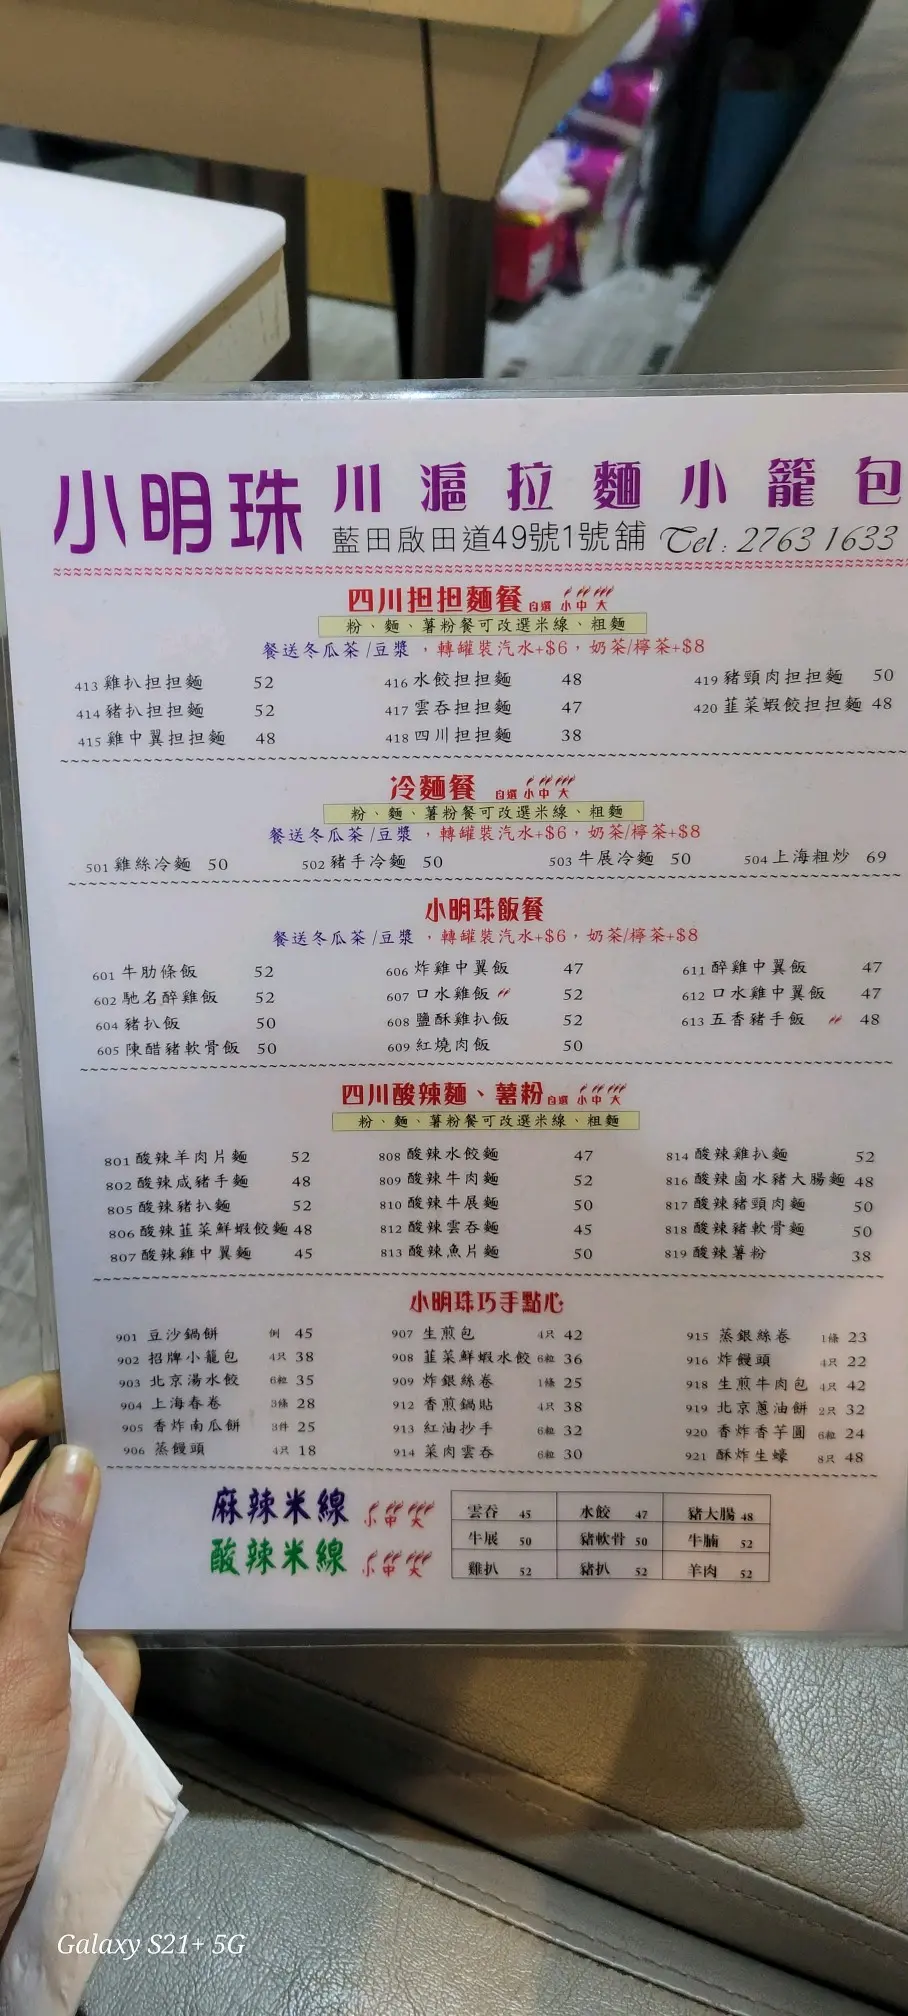 小明珠 川滬拉麵小籠包
藍田啟田道49號1號舖 Tel : 2763 1633
四川担担麵餐 自選 小 中 大
粉、麵、薯粉餐可改選米線、粗麵
餐送冬瓜茶/豆漿，轉罐裝汽水+$6，奶茶/檸茶+$8
413 雞扒担担麵 52 416 水餃担担麵 48 419 豬頸肉担担麵 50
414 豬扒担担麵 52 417 雲吞担担麵 47 420 韮菜蝦餃担担麵 48
415 雞中翼担担麵 48 418 四川担担麵 38
冷麵餐 自選 小 中 大
粉、麵、薯粉餐可改選米線、粗麵
餐送冬瓜茶/豆漿，轉罐裝汽水+$6，奶茶/檸茶+$8
501 雞絲冷麵 50 502 豬手冷麵 50 503 牛展冷麵 50 504 上海粗炒 69
小明珠飯餐
餐送冬瓜茶/豆漿，轉罐裝汽水+$6，奶茶/檸茶+$8
601 牛肋條飯 52 606 炸雞中翼飯 47 611 醉雞中翼飯 47
602 馳名醉雞飯 52 607 口水雞飯 52 612 口水雞中翼飯 47
604 豬扒飯 50 608 鹽酥雞扒飯 52 613 五香豬手飯 48
605 陳醋豬軟骨飯 50 609 紅燒肉飯 50
四川酸辣麵、薯粉 自選 小 中 大
粉、麵、薯粉餐可改選米線、粗麵
801 酸辣羊肉片麵 52 808 酸辣水餃麵 47 814 酸辣雞扒麵 52
802 酸辣咸豬手麵 48 809 酸辣牛肉麵 52 816 酸辣鹵水豬大腸麵 48
805 酸辣豬扒麵 52 810 酸辣牛展麵 50 817 酸辣豬頸肉麵 50
806 酸辣韮菜鮮蝦餃麵 48 812 酸辣雲吞麵 45 818 酸辣豬軟骨麵 50
807 酸辣雞中翼麵 45 813 酸辣魚片麵 50 819 酸辣薯粉 38
小明珠巧手點心
901 豆沙鍋餅 例 45 907 生煎包 4只 42 915 蒸銀絲卷 1條 23
902 招牌小籠包 4只 38 908 韮菜鮮蝦水餃 6粒 36 916 炸饅頭 4只 22
903 北京湯水餃 6粒 35 909 炸銀絲卷 1條 25 918 生煎牛肉包 4只 42
904 上海春卷 3條 28 912 香煎鍋貼 4只 38 919 北京蔥油餅 2只 32
905 香炸南瓜餅 3件 25 913 紅油抄手 6粒 32 920 香炸香芋圓 6粒 24
906 蒸饅頭 4只 18 914 菜肉雲吞 6粒 30 921 酥炸生蠔 8只 48
麻辣米線 小 中 大
酸辣米線 小 中 大
雲吞 45 水餃 47 豬大腸 48
牛展 50 豬軟骨 50 牛腩 52
雞扒 52 豬扒 52 羊肉 52
Galaxy S21+ 5G